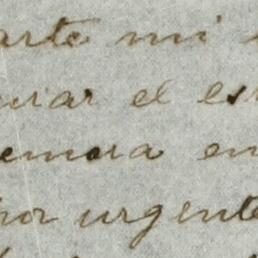 arte mi
urar el es
emora en
por urgente